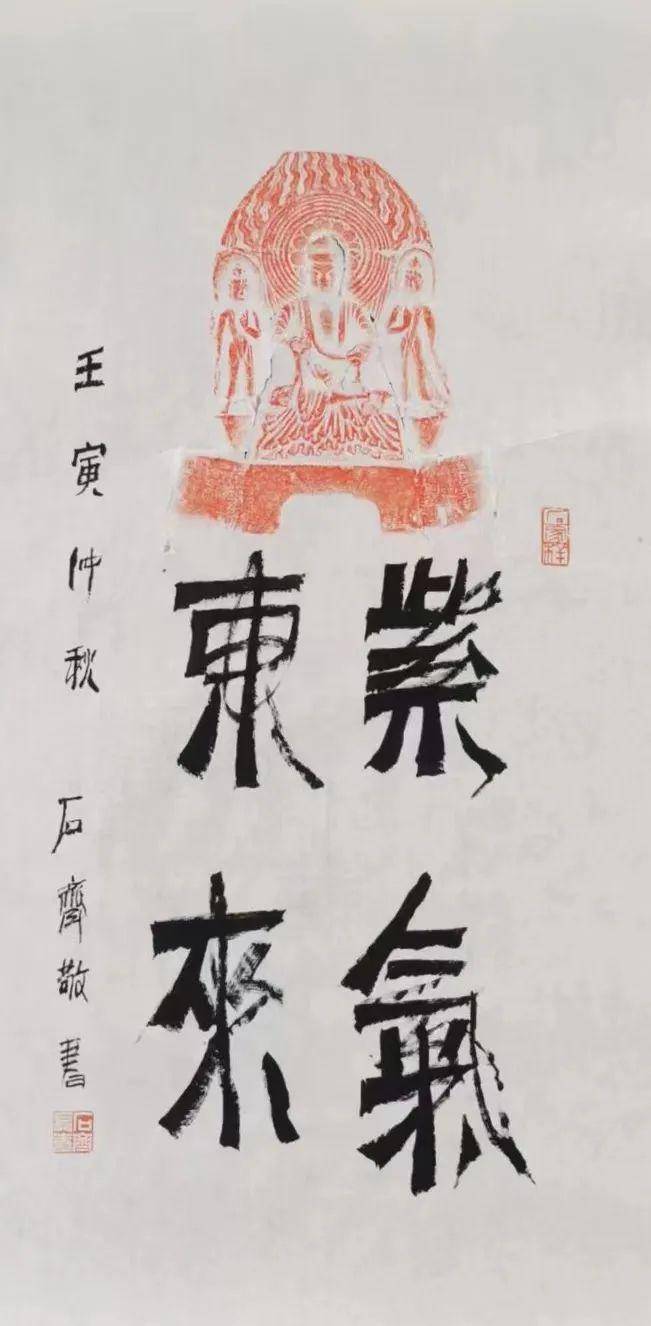 紫氣
東來
壬寅仲秋 石齊敬書